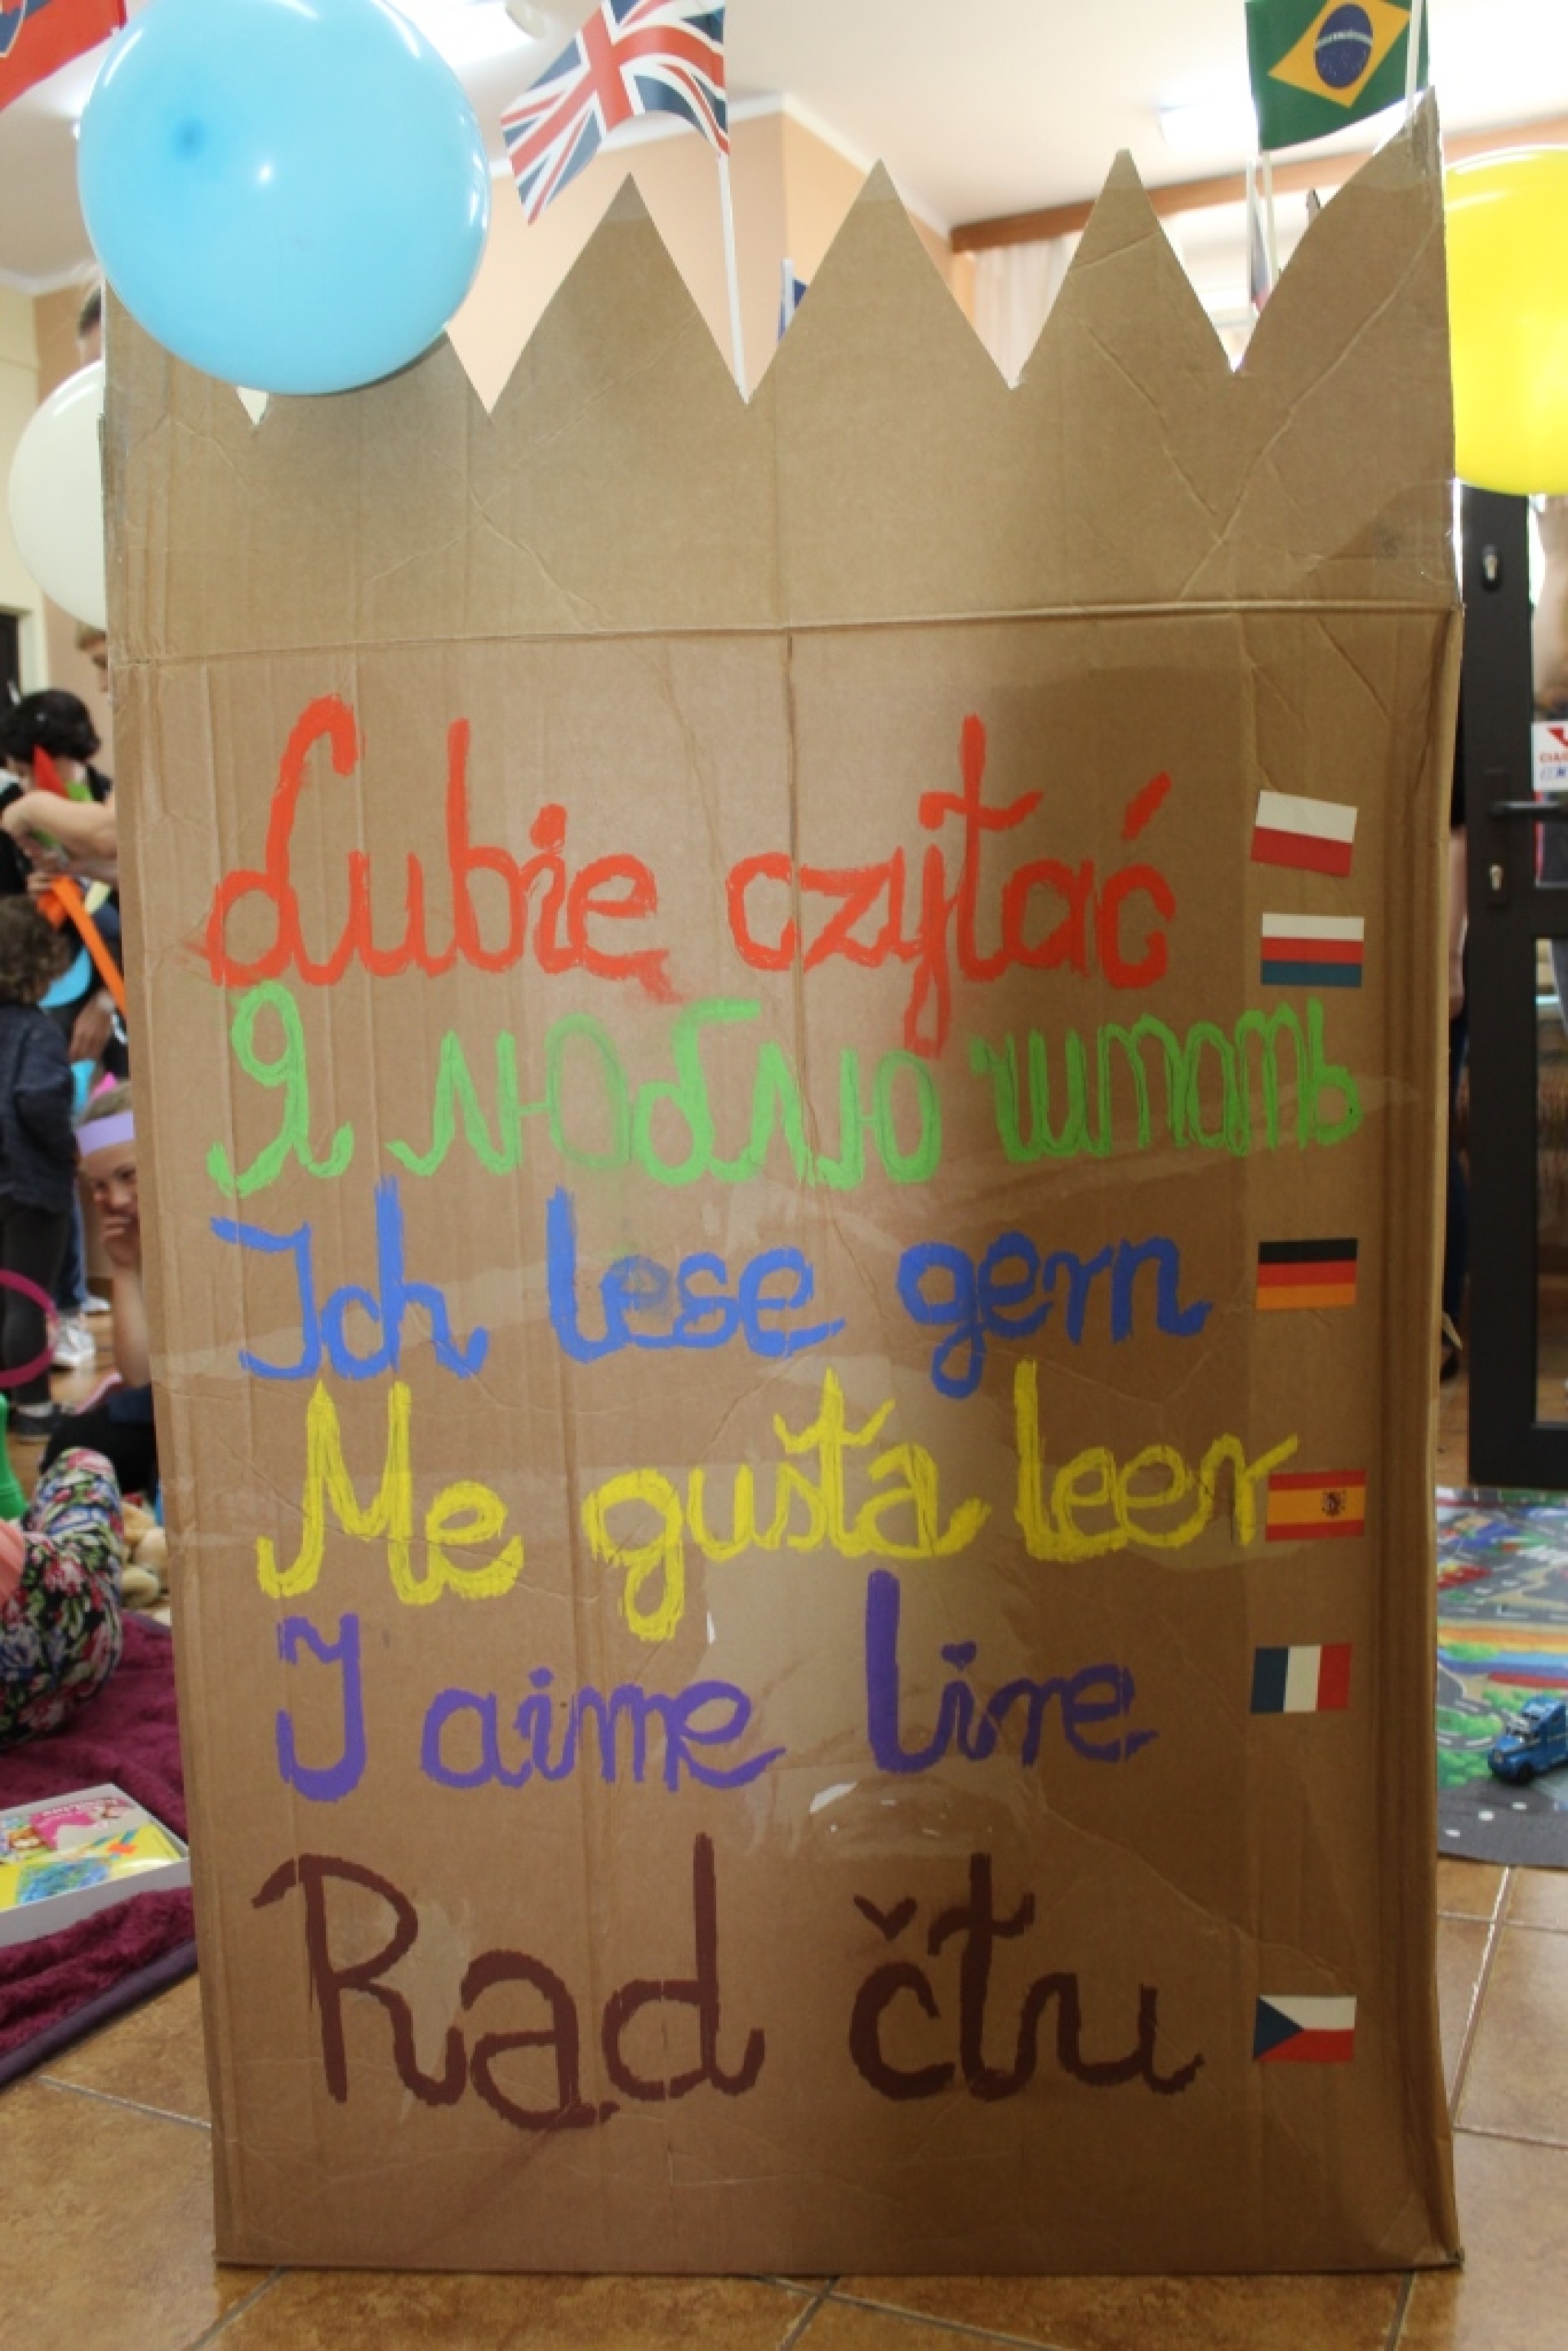 Lubię czytać
Я люблю читать
Ich lese gern
Me gusta leer
J aime lire
Rad čtu